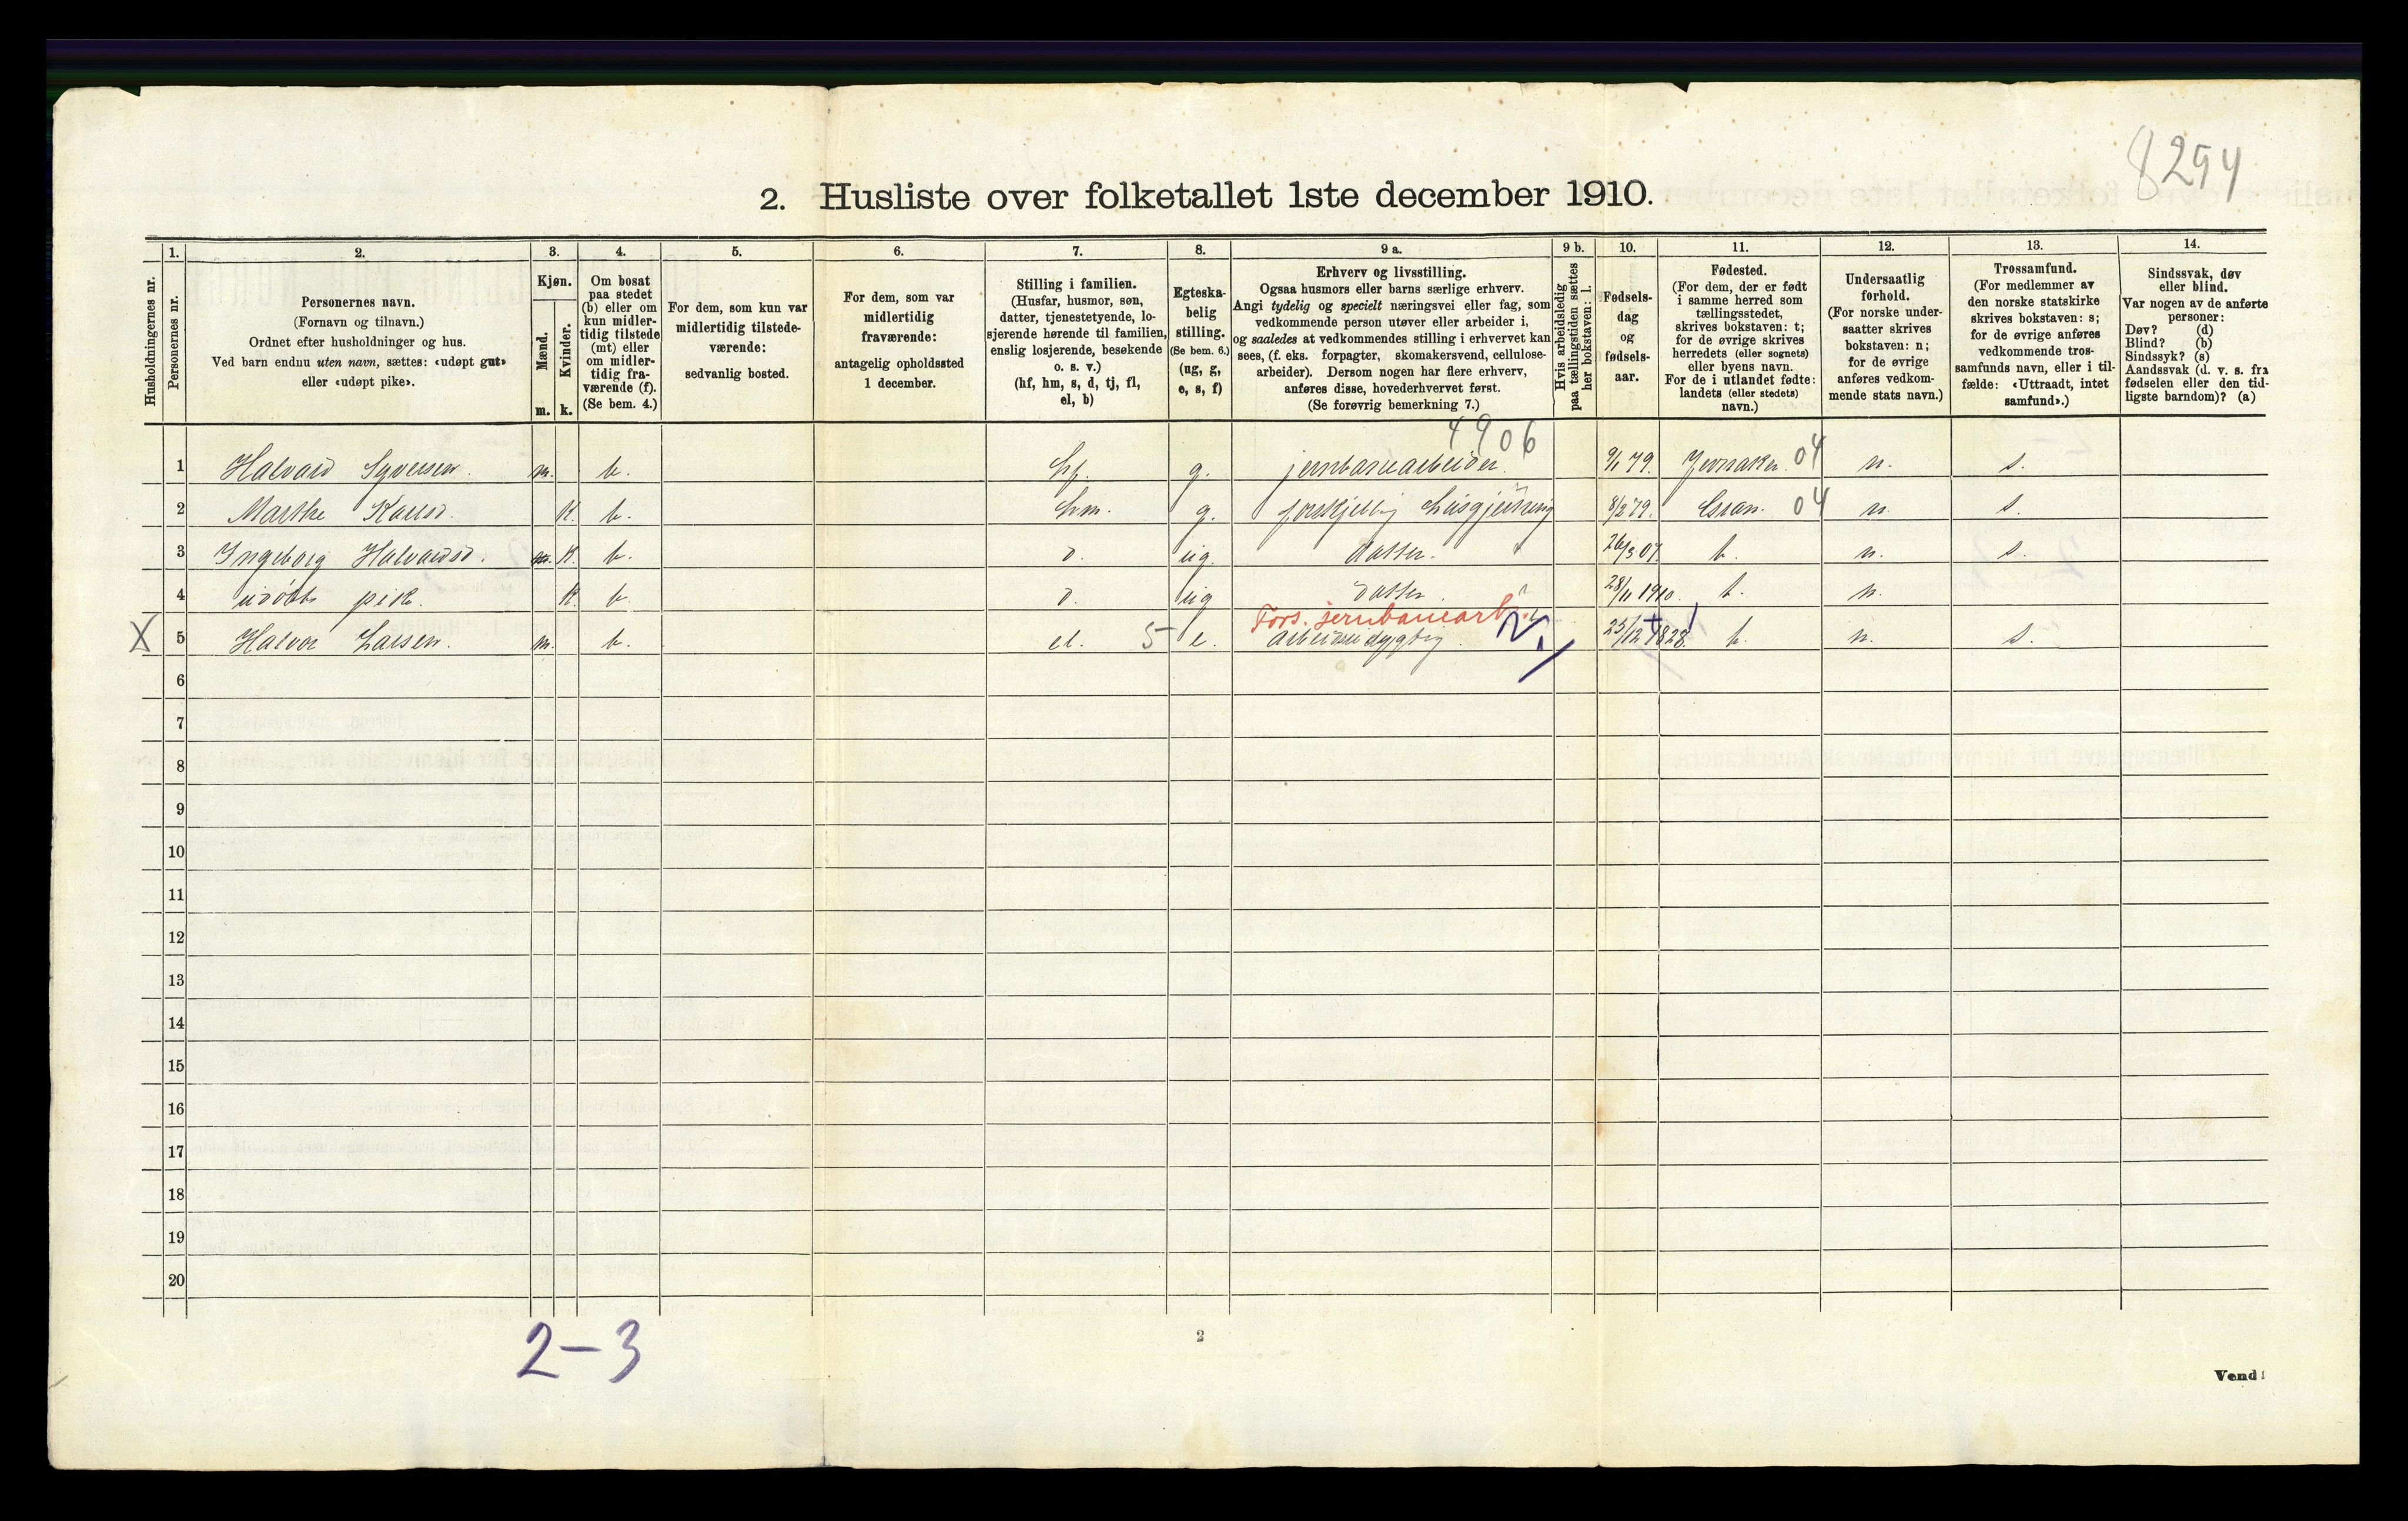 8294
2. Husliste over folketallet 1ste december 1910.
Husholdningernes nr.
1.
Personernes nr.
2.
Personernes navn.
(Fornavn og tilnavn.)
Ordnet efter husholdninger og hus.
Ved barn endnu uten navn, sættes: «udøpt gut»
eller «udøpt pike».
3.
Kjøn.
Mænd.
m.
Kvinder.
k.
4.
Om bosat
paa stedet
(b) eller om
kun midler-
tidig tilstede
(mt) eller
om midler-
tidig fra-
værende (f).
(Se bem. 4.)
5.
For dem, som kun var
midlertidig tilstede-
værende:
sedvanlig bosted.
6.
For dem, som var
midlertidig
fraværende:
antagelig opholdssted
1 december.
7.
Stilling i familien.
(Husfar, husmor, søn,
datter, tjenestetyende, lo-
sjerende hørende til familien,
enslig losjerende, besøkende
o. s. v.)
(hf, hm, s, d, tj, fl,
el, b)
8.
Egteska-
belig
stilling.
(Se bem. 6.)
(ug, g,
e, s, f)
9 a.
Erhverv og livsstilling.
Ogsaa husmors eller barns særlige erhverv.
Angi tydelig og specielt næringsvei eller fag, som
vedkommende person utøver eller arbeider i,
og saaledes at vedkommendes stilling i erhvervet kan
sees, (f. eks. forpagter, skomakersvend, cellulose-
arbeider). Dersom nogen har flere erhverv,
anføres disse, hovederhvervet først.
(Se forøvrig bemerkning 7.)
9 b.
Hvis arbeidsledig
paa tællingstiden sættes
her bokstaven: l.
10.
Fødsels-
dag
og
fødsels-
aar.
11.
Fødested.
(For dem, der er født
i samme herred som
tællingsstedet,
skrives bokstaven: t;
for de øvrige skrives
herredets (eller sognets)
eller byens navn.
For de i utlandet fødte:
landets (eller stedets)
navn.)
12.
Undersaatlig
forhold.
(For norske under-
saatter skrives
bokstaven: n;
for de øvrige
anføres vedkom-
mende stats navn.)
13.
Trossamfund.
(For medlemmer av
den norske statskirke
skrives bokstaven: s;
for de øvrige anføres
vedkommende tros-
samfunds navn, eller i til-
fælde: «Uttraadt, intet
samfund».)
14.
Sindssvak, døv
eller blind.
Var nogen av de anførte
personer:
Døv? (d)
Blind? (b)
Sindssyk? (s)
Aandssvak (d. v. s. fra
fødselen eller den tid-
ligste barndom)? (a)
4906
1 Halvard Syversen. m. b. hf. g. jernbanearbeider. 9/1 79. Jevnaker. 04 n. s.
2 Marthe Karlsd. K. b. hm. g. forskjellig husgjerning 8/2 79. Gran. 04 n. s.
3 Ingeborg Halvardsd. m. K. b. d. ug. datter. 26/3 07. t. n. s.
4 udöbt pike. K. b. d. ug datter 28/11 1910. t. n.
Fors. jernbanearb.
X 5 Halvor Larsen. m. b. el. 5 e. arbeidsudygtig. 25/12 1828. t. n. s.
6
7
8
9
10
11
12
13
14
15
16
17
18
19
20
2-3
2
Vend!